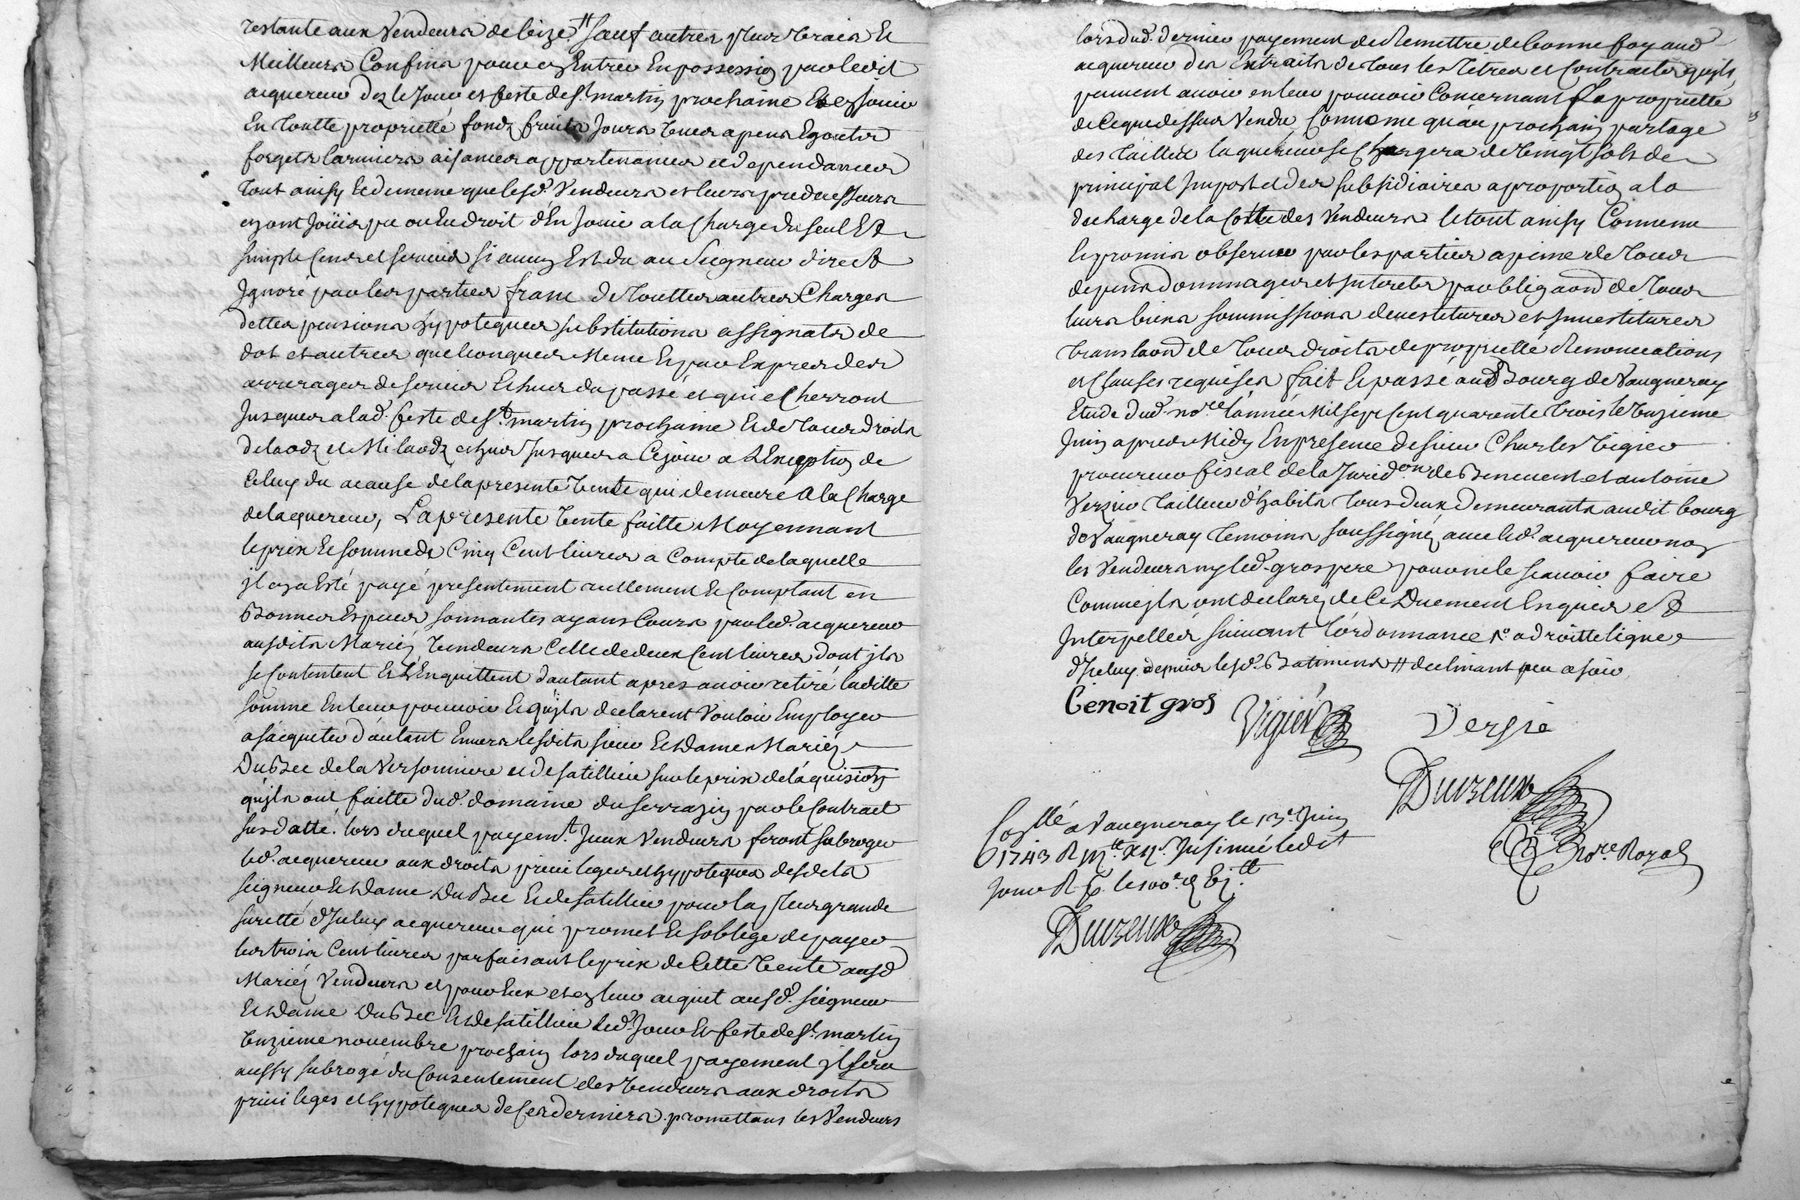 restante aux Vendeurs de bize # sauf autres plus vrais Et
Meilleurs Confins pour en Entrer En possession par ledit
acquereur dez le Jour et feste de St. martin prochaine Et en Jouir
En toutte proprietté fondz fruits Jours Vues apens Egouts
forgets larmiers aisances appartenances et dependances
tout ainsy Et de meme que lesd. Vendeurs et leurs predecesseurs
en ont Joüis pu ou Eu droit d'En Jouir a la Charge du seul Et
simple Cens et servis si aucun Est du au Seigneur direct
Ignoré par les parties franc de touttes autres Charges
dettes pensions hypoteques substitutions assignats de
dot et autres quelconques Meme Et par Expres des
arrerages de servis Echus du passé et qui eCherront
Jusques a lad. feste de St. martin prochaine Et de tous droits
de laodz et Milaodz echus Jusques a Ce jour a L'Exception de
Celuy du acause de la presente Vente qui demeure A la Charge
de laquereur, La presente Vente faitte Moyennant
le prix Et somme de Cinq Cent livres a Compte de laquelle
jl en a Esté payé presentement reellement Et Comptant en
Bonnes Especes sonnantes ayans Cours par led. acquereur
ausdits Mariéz Vendeurs Celle de deux Cent livres dont jls
se Contentent Et L'Enquittent d'autant apres avoir retiré laditte
somme En leur pouvoir Et qu'jls declarent Vouloir Employer
a sacquiter d'autant Envers lesdits sieur Et dame Mariéz
Du Bec de la Versonniere et de satillieu sur le prix de l'aquisition
qu'jls ont faitte dud. domaine du serrazin par le Contract
susdatté. lors duquel payemt. Jceux Vendeurs feront subroger
led. acquereur aux droits privileges et hypoteques desdits
seigneur Et dame Du Bec Et de satillieu pour la plus grande
suretté d'Jceluy acquereur qui promet Et soblige de payer
les trois Cent livres parfaisant le prix de Cette Vente ausd.
Mariéz Vendeurs et pour Eux et en leur acquit ausd. seigneur
Et dame Du Bec Et de satillieu led. Jour Et feste de St. martin
onzieme novembre prochain lors duquel payement jl sera
aussy subrogé du Consentement des Vendeurs aux droits
privileges et hypoteques de Ces derniers. promettans les Vendeurs
lors dud. dernier payement de Remettre de bonne foy aud.
acquereur des Extraits de tous les titres et Contracts qu'jls
peuvent avoir en leur pouvoir Concernant la proprietté
de Ce que dessus Vendu Comme qu'au prochain partage
des tailles laquereur se Chargera de Vingt sols de
principal Jmpost et des subsidiaires a proportion a la
decharge de la Cotte des Vendeurs le tout ainsy Convenu
Et promis observer par les parties a peine de tous
depens dommages et Jnterets par obligaon. de tous
leurs biens soumissions devestitures et Jnvestitures
translaon. de tous droits de proprietté Renonciations
et Clauses requises fait Et passé aud. Bourg de Vaugneray
Etude dud. nore. l'année Mil sept Cent quarente trois le treizieme
Juin apres Midy En presence de sieur Charles Vigier
procureur fiscal de la Juridon. de Benevent et antoine
Verzier tailleur d'habits tous deux demeurants audit bourg
de Vaugneray temoins soussignéz avec led. acquereur non
les Vendeurs ny led. gros pere pour ne le scavoir faire
Comme jls ont declaré de Ce Duement Enquis et
Jnterpellés suivant l'ordonnance a droitte ligne
d'Jceluy depuis lesd. Batimens # declinant peu a soir.
Benoit gros
Vigier
Versié
Duizeux
Collé a Vaugneray le 13e Juin
1743 R
Jnsinué ledit
Jour R
Duizeux
nore. Royal